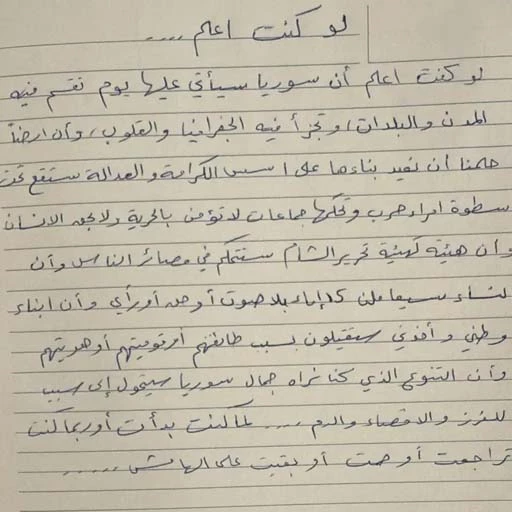 لو كنت اعلم .....
لو كنت اعلم أن سوريا سيأتي عليها يوم نقسم فيه
المدن والبلدات، وتجزأ فيه الجغرافيا والقلوب، وأن ارضاً
حلمنا أن نعيد بناءها على اسس الكرامة والعدالة ستقع تحت
سطوة امراء حرب وتحكمها جماعات لا تؤمن بالحرية ولا بحق الانسان
وأن هيئة كهيئة تحرير الشام ستتحكم في مصائر الناس وأن
نساء سيعاملن كإماء بلا صوت أو حق أو رأي وأن ابناء
وطني وأخوتي سيقتلون بسبب طائفتهم أو قوميتهم أو هويتهم
وأن التنوع الذي كنا نراه جمال سوريا سيتحول إلى سبب
للفرز والاقصاء والدم .... لما كنت بدأت أو ربما كنت
تراجعت أو صمت أو بقيت على الهامش ......